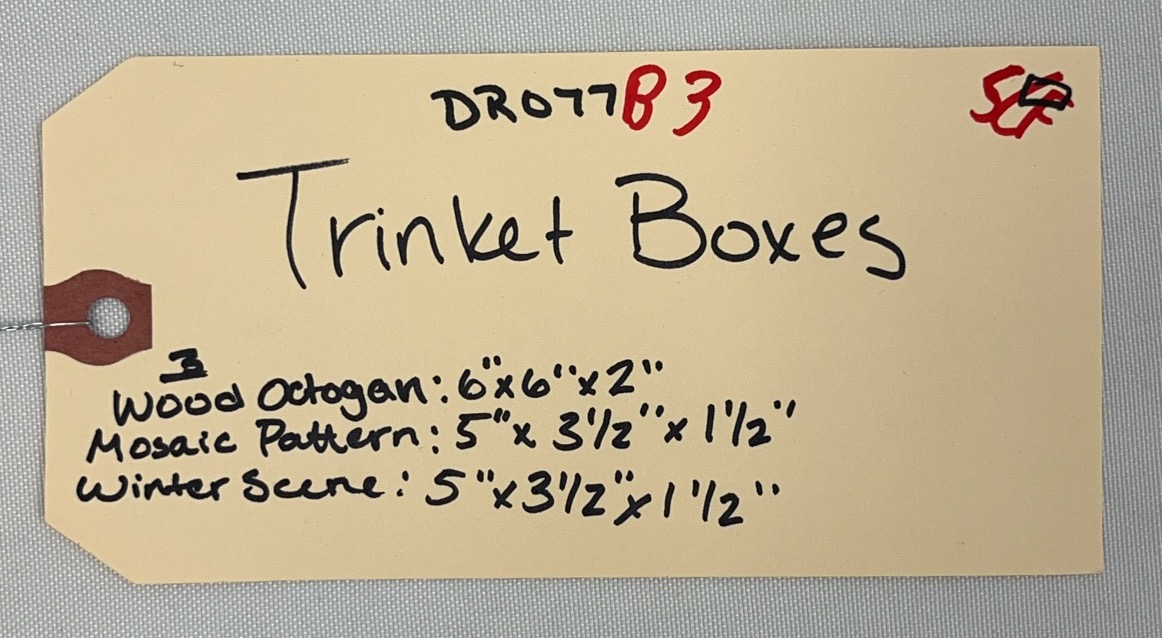 DR077B3
Trinket Boxes
3
Wood Octogan: 6"x6"x2"
Mosaic Pattern: 5"x 3 1/2"x 1 1/2"
Winter Scene: 5"x3 1/2"x1 1/2"